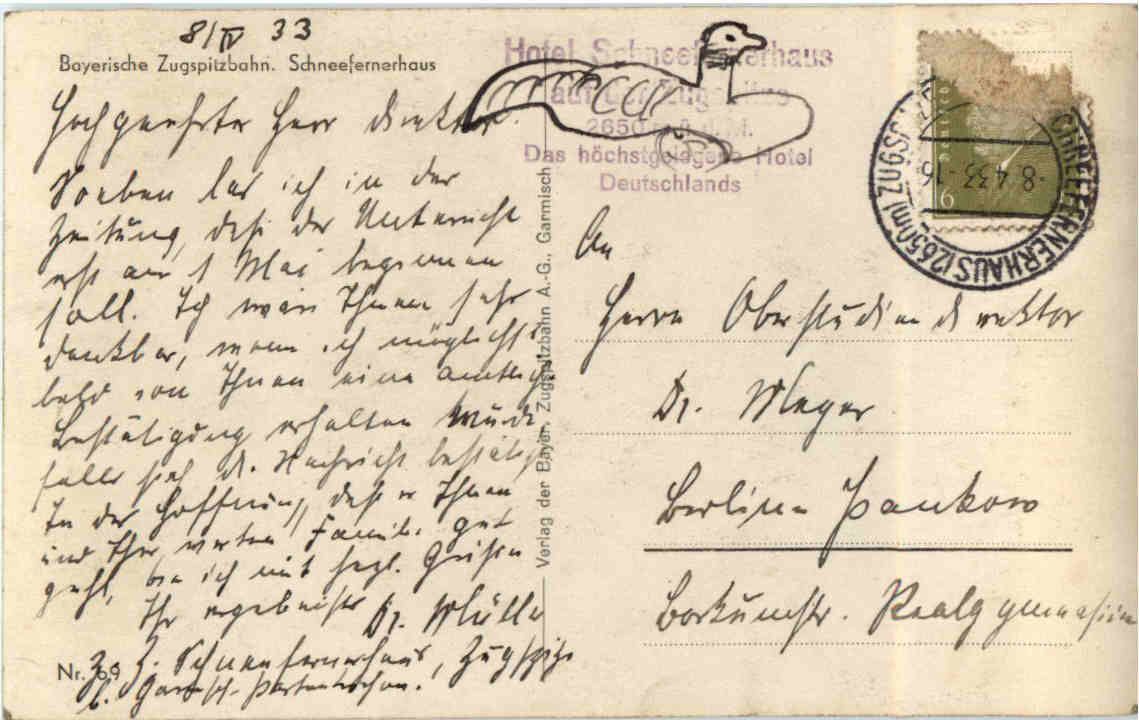 8/IV 33
Bayerische Zugspitzbahn. Schneefernerhaus
Hochgeehrter Herr Direktor.
Soeben las ich in der
Zeitung, daß der Unterricht
erst am 1 Mai beginnen
soll. Ich wäre Ihnen sehr
dankbar, wenn ich möglichst
bald von Ihnen eine amtliche
Bestätigung erhalten würde
falls sich d. Nachricht bestätigt
In der Hoffnung, daß es Ihnen
und Ihrer werten Familie gut
geht, bin ich mit herzl. Grüßen
Ihr ergebenster Dr. Müller
Z. Z. Schneefernerhaus, Zugspitze
b. Garmisch-Partenkirchen.
Nr. 69
Verlag der Bayer. Zugspitzbahn A.-G., Garmisch
Hotel Schneefernerhaus
auf der Zugspitze
2650 m ü. d. M.
Das höchstgelegene Hotel
Deutschlands
6
SCHNEEFERNERHAUS (2650m) ZUGSP
-8.4.33.-16
An
Herrn Oberstudiendirektor
Dr. Meyer
Berlin-Pankow
Borkumstr. Realgymnasium